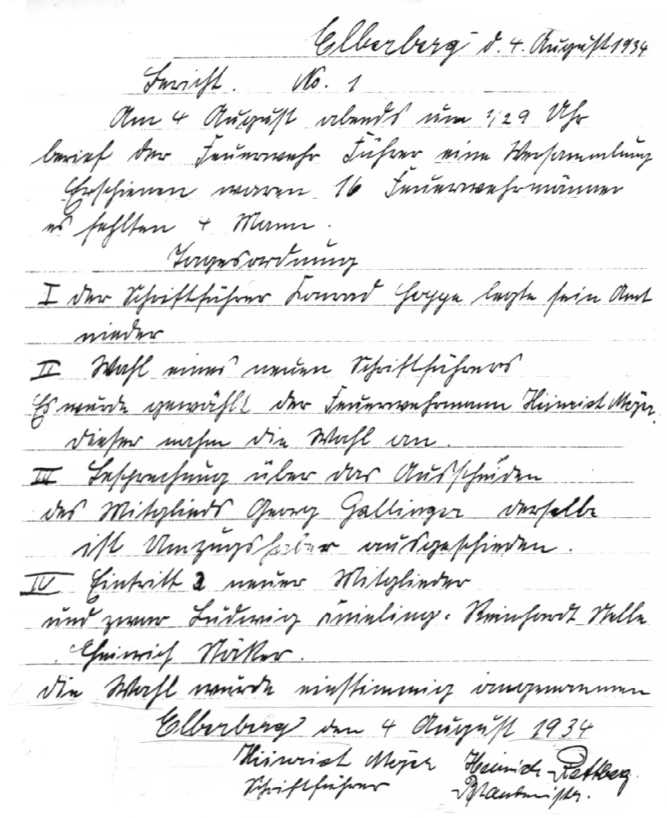 Elberberg d. 4. August 1934
Bericht. No. 1
Am 4 August abends um 1/2 9 Uhr
berief der Feuerwehr Führer eine Versammlung
Erschienen waren 16 Feuerwehrmänner
es fehlten 4 Mann.
Tagesordnung
I der Schriftführer Konrad Hoppe legte sein Amt
nieder
II Wahl eines neuen Schriftführers
Es wurde gewählt der Feuerwehrmann Heinrich Meyer.
dieser nahm die Wahl an.
III Besprechung über das Ausscheiden
des Mitglieds Georg Gallinger derselbe
ist Umzugshalber ausgeschieden.
IV Eintritt neuer Mitglieder
und zwar Ludwig Reinhardt Stelle
Heinrich
die Wahl wurde einstimmig angenommen
Elberberg den 4 August 1934
Heinrich Meyer Heinrich Rettberg
Schriftführer Brandmeister.